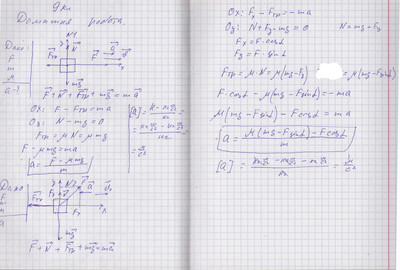 Домашняя работа
Дано
F
m
μ
a-?
N↑
Fтр
F
a
mg
F + N + Fтр + mg = ma
Ox: F - Fтр = ma
Oy: N - mg = 0
Fтр = μN = μmg
F - μmg = ma
a = F - μmg / m
[a] =
= м/с²
Дано
F
m
μ
N
F
Fy
Fx
Fтр
a
x
mg
F + N + Fтр + mg = ma
Ox: Fx - Fтр = -ma
Oy: N + Fy - mg = 0 N = mg - Fy
Fx = F·cosα
Fy = F·sinα
Fтр = μ·N = μ(mg - Fy) = μ(mg - Fsinα)
F·cosα - μ(mg - Fsinα) = -ma
μ(mg - Fsinα) - Fcosα = ma
a = μ(mg - Fsinα) - Fcosα / m
[a] = = м/с²